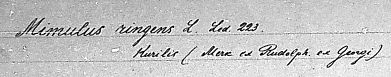 Mimulus ringens L. Led. 223.
Kurilis (Merk ex Rudolph. ex Georgi)